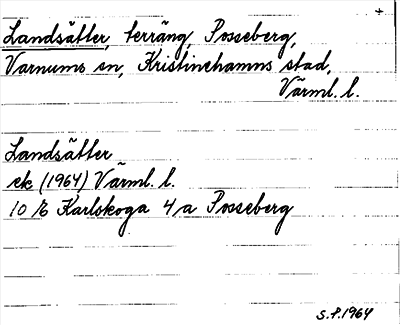 +
Landsätter, terräng, Posseberg,
Varnums sn, Kristinehamns stad,
Värml. l.
Landsätter
ek (1964) Värml. l.
10 E Karlskoga 4 a Posseberg
S.P. 1964